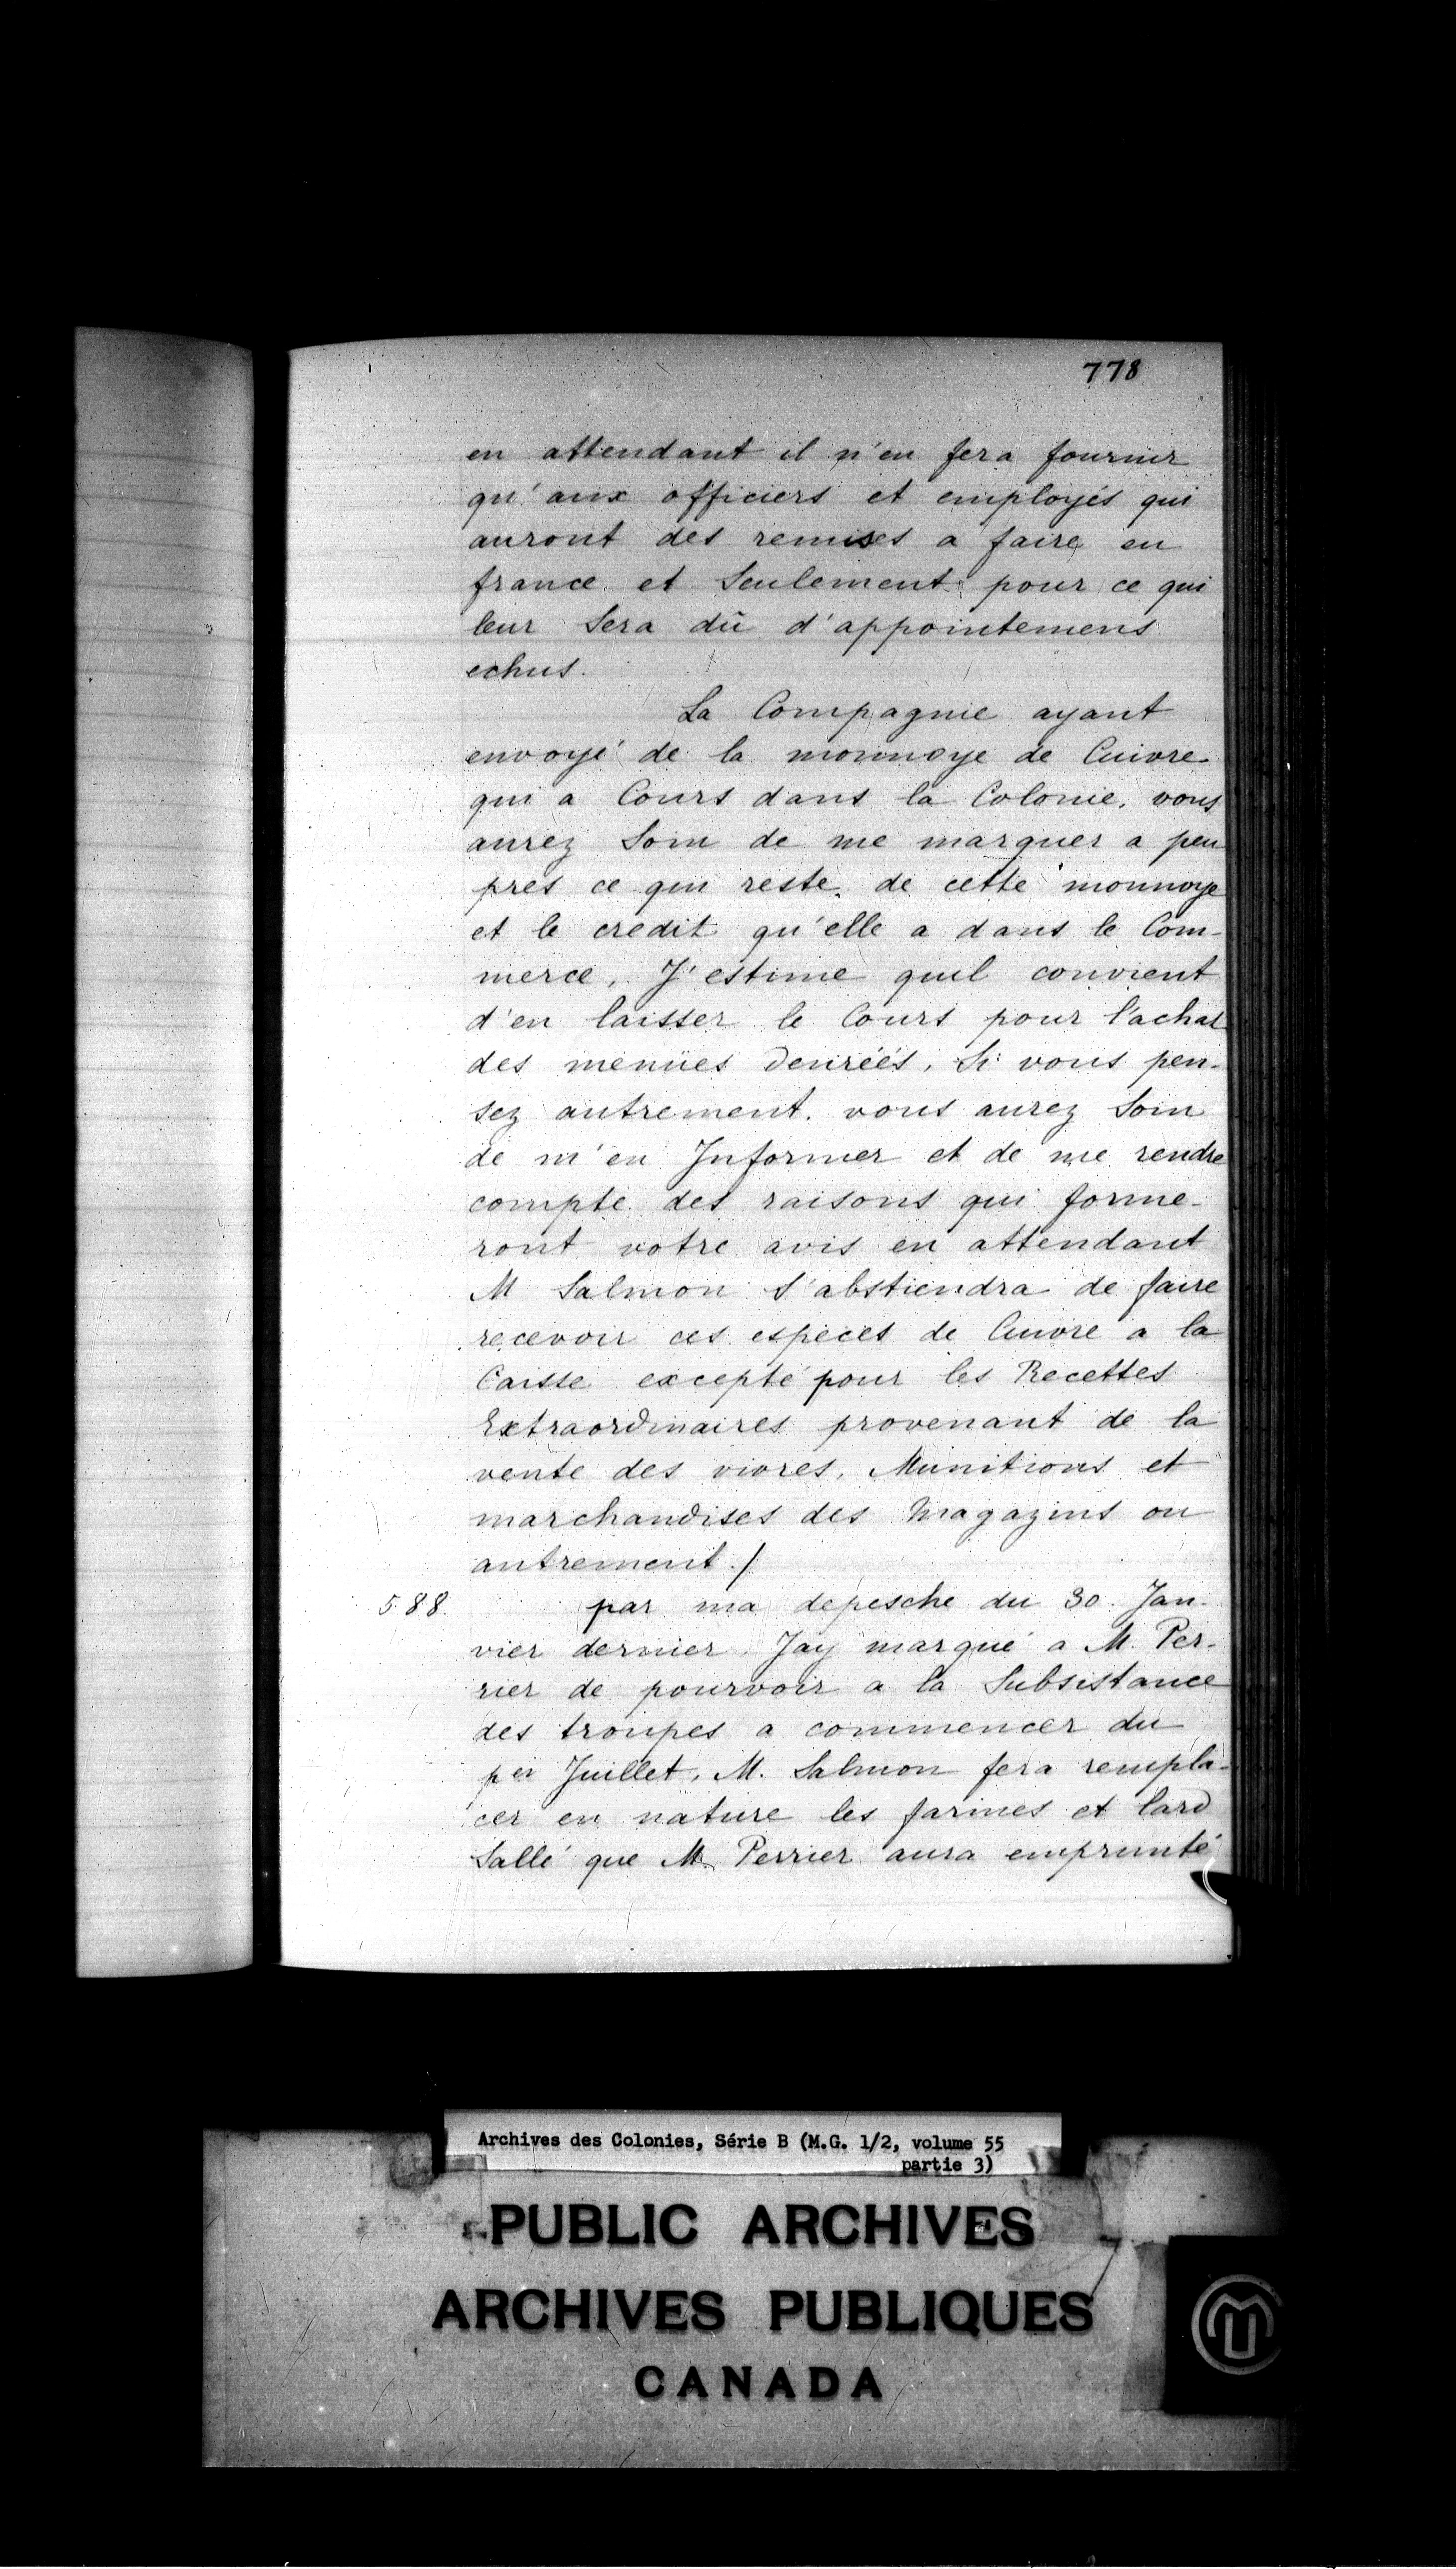 778
en attendant il n'en fera fournir
qu'aux officiers et employés qui
auront des remises a faire en
france. et Seulement pour ce qui
leur Sera dû d'appointemens
echus.
La Compagnie ayant
envoyé de la monnoye de Cuivre
qui a Cours dans la Colonie. vous
aurez Soin de me marquer a peu
pres ce qui reste de cette monnoye
et le credit qu'elle a dans le Com-
merce, J'estime quil convient
d'en laisser le Cours pour l'achat
des menües Denréés, Si vous pen-
sez autrement. vous aurez Soin
de m'en Informer et de me rendre
compte des raisons qui forme-
ront votre avis en attendant
M Salmon S'abstiendra de faire
recevoir ces especes de Cuivre a la
Caisse excepté pour les Recettes
Extraordinaires provenant de la
vente des vivres, Munitions et
marchandises des Magazins ou
autrement./
588. par ma depesche du 30. Jan-
vier dernier, Jay marqué a M. Per-
rier de pourvoir a la Subsistance
des troupes a commencer du
per Juillet, M. Salmon fera rempla-
cer en nature les farines et lard
Sallé que M. Perrier aura emprunté
Archives des Colonies, Série B (M.G. 1/2, volume 55
partie 3)
PUBLIC ARCHIVES
ARCHIVES PUBLIQUES
CANADA